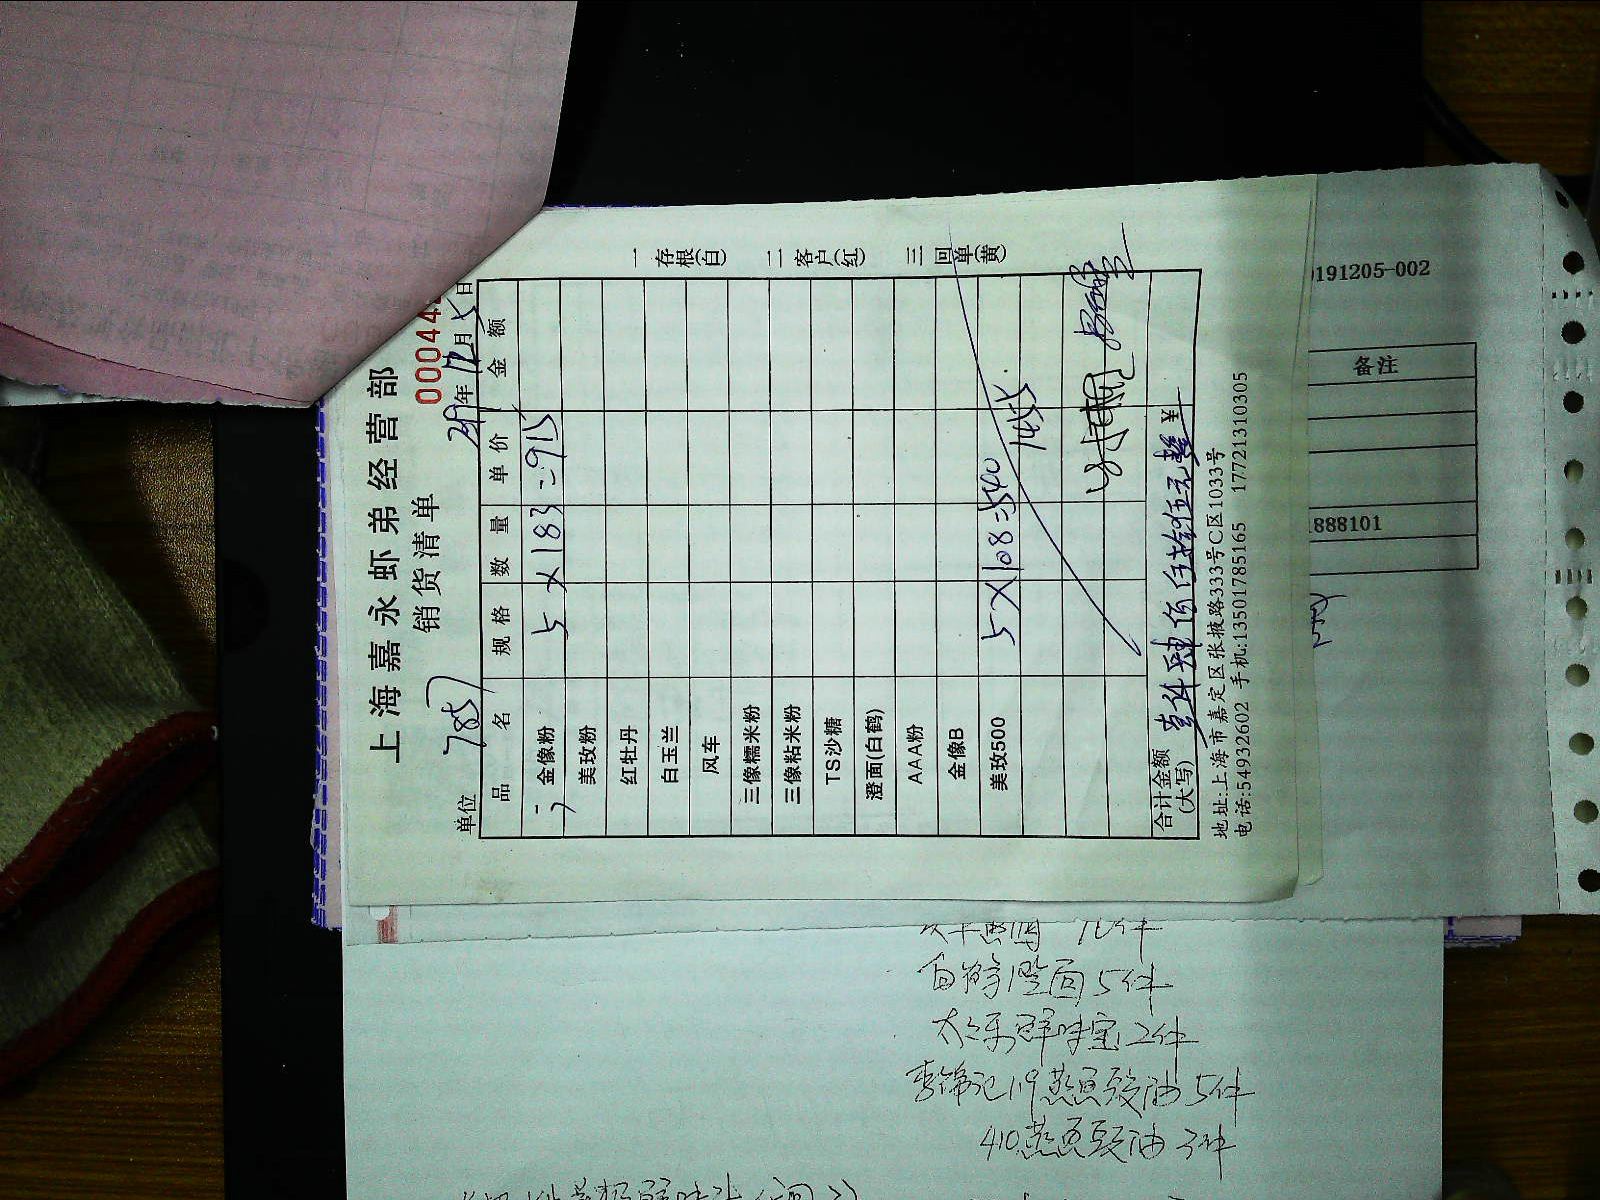 上海嘉永虾弟经营部
销货清单
000044
单位 785 年12月5日
品名 规格 数量 单价 金额
金像粉 5×183=915
美玫粉
红牡丹
白玉兰
风车
三像糯米粉
三像粘米粉
TS沙糖
澄面(白鹤)
AAA粉
金像B
美玫500 5×108=540
1455
合计金额(大写) 壹仟肆佰伍拾伍元整 ¥
地址:上海市嘉定区张掖路333号C区1033号
电话:54932602 手机:13501785165 17721310305
一存根(白) 二客户(红) 三回单(黄)
0191205-002
备注
1888101
白鹤澄面5件
太太乐鲜味宝2件
李锦记1.9蒸鱼豉油5件
410蒸鱼豉油3件